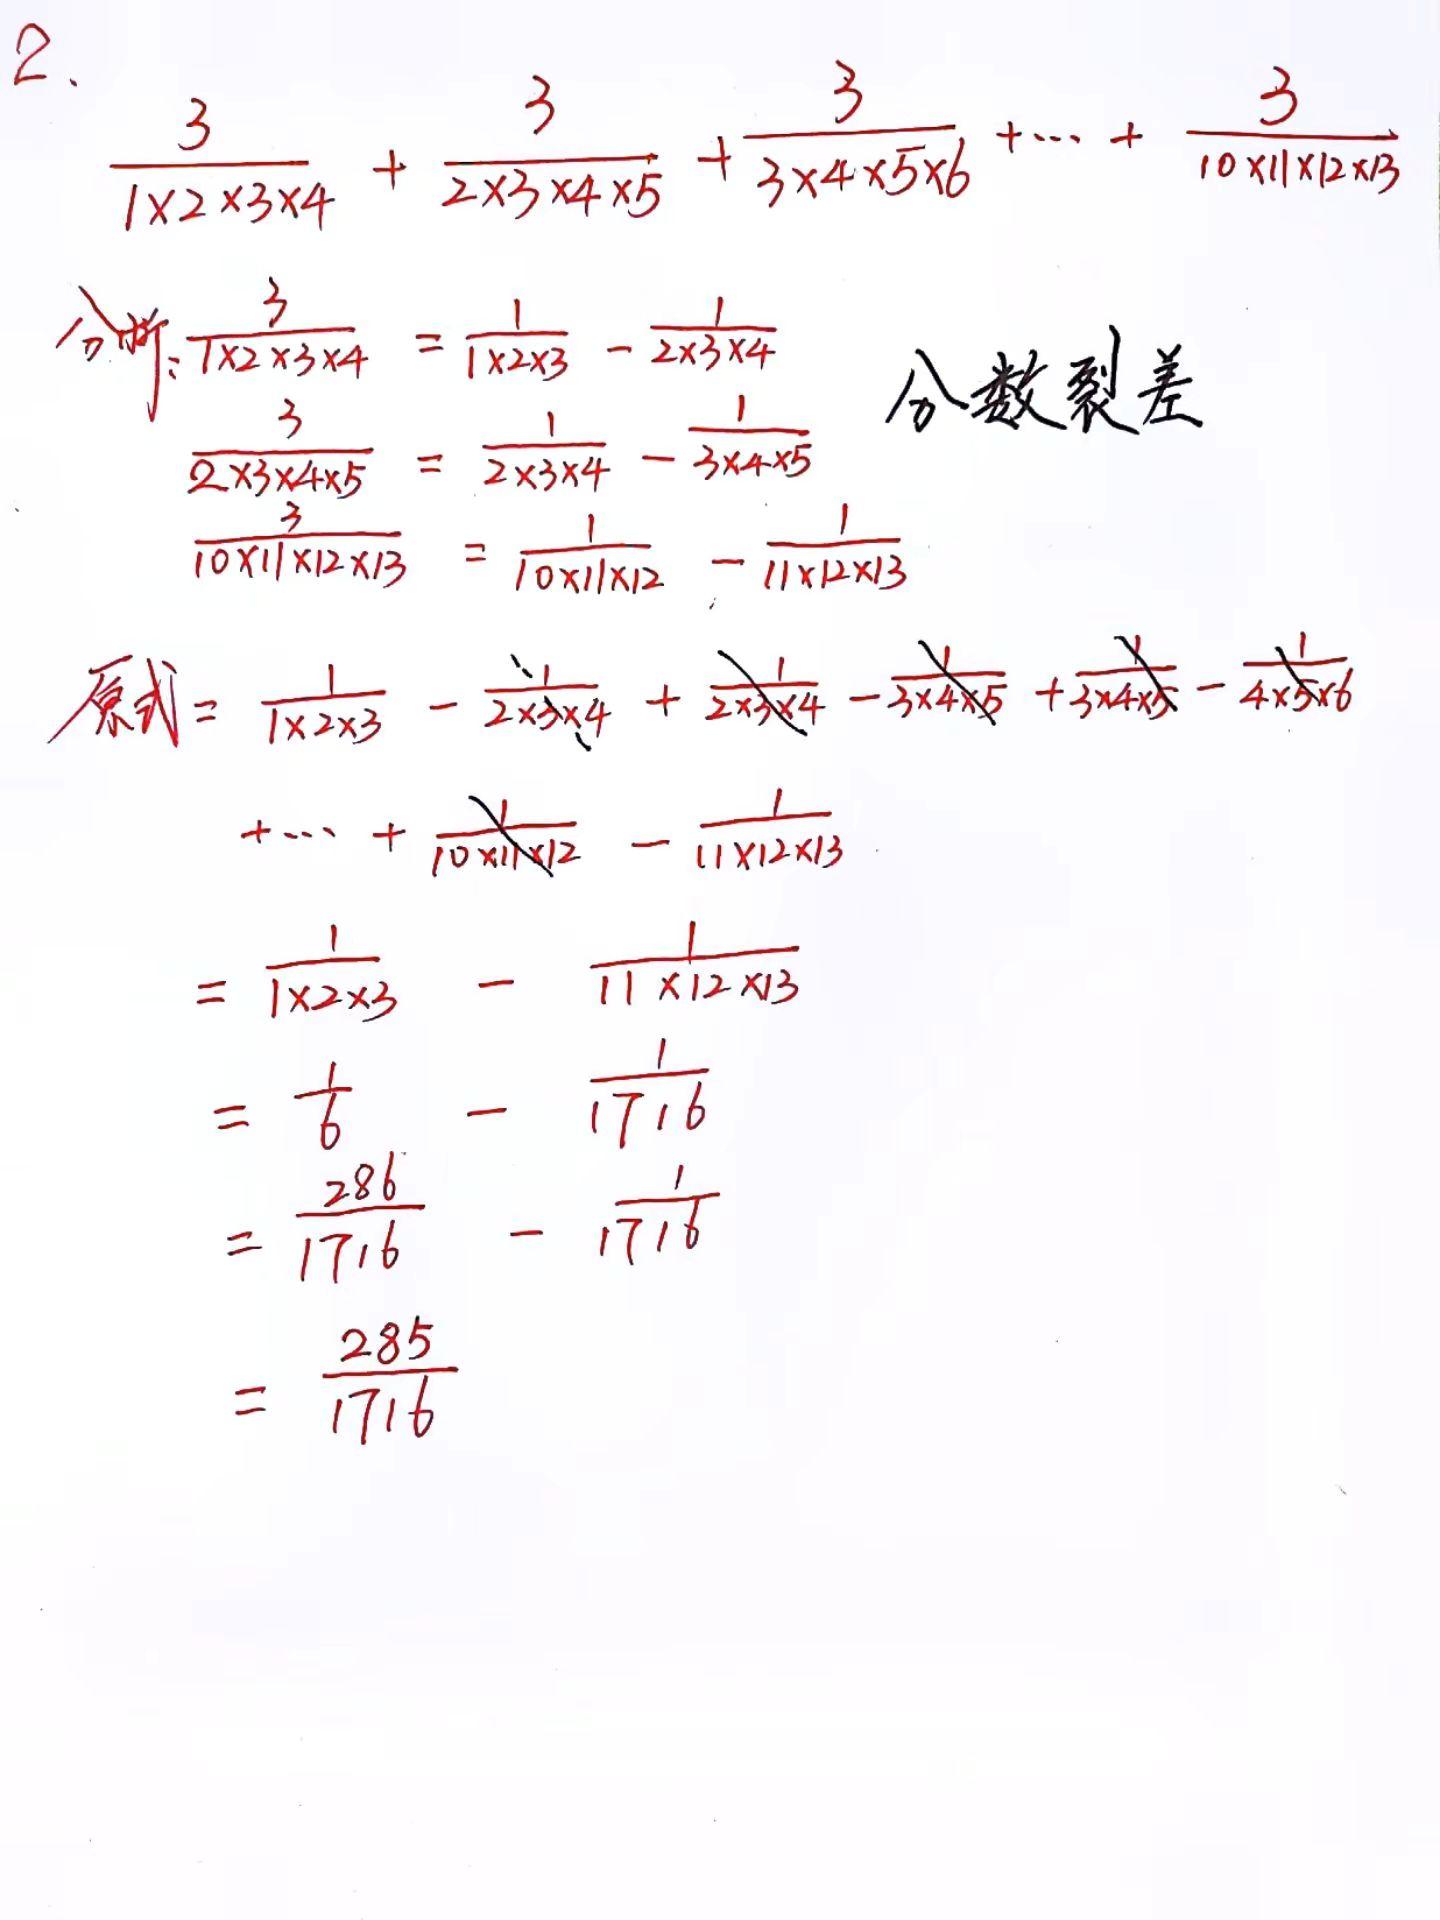 2.
3/(1×2×3×4) + 3/(2×3×4×5) + 3/(3×4×5×6) +⋯+ 3/(10×11×12×13)
分析: 3/(1×2×3×4) = 1/(1×2×3) - 1/(2×3×4)
分数裂差
3/(2×3×4×5) = 1/(2×3×4) - 1/(3×4×5)
3/(10×11×12×13) = 1/(10×11×12) - 1/(11×12×13)
原式= 1/(1×2×3) - 1/(2×3×4) + 1/(2×3×4) - 1/(3×4×5) + 1/(3×4×5) - 1/(4×5×6)
+⋯+ 1/(10×11×12) - 1/(11×12×13)
= 1/(1×2×3) - 1/(11×12×13)
= 1/6 - 1/1716
= 286/1716 - 1/1716
= 285/1716